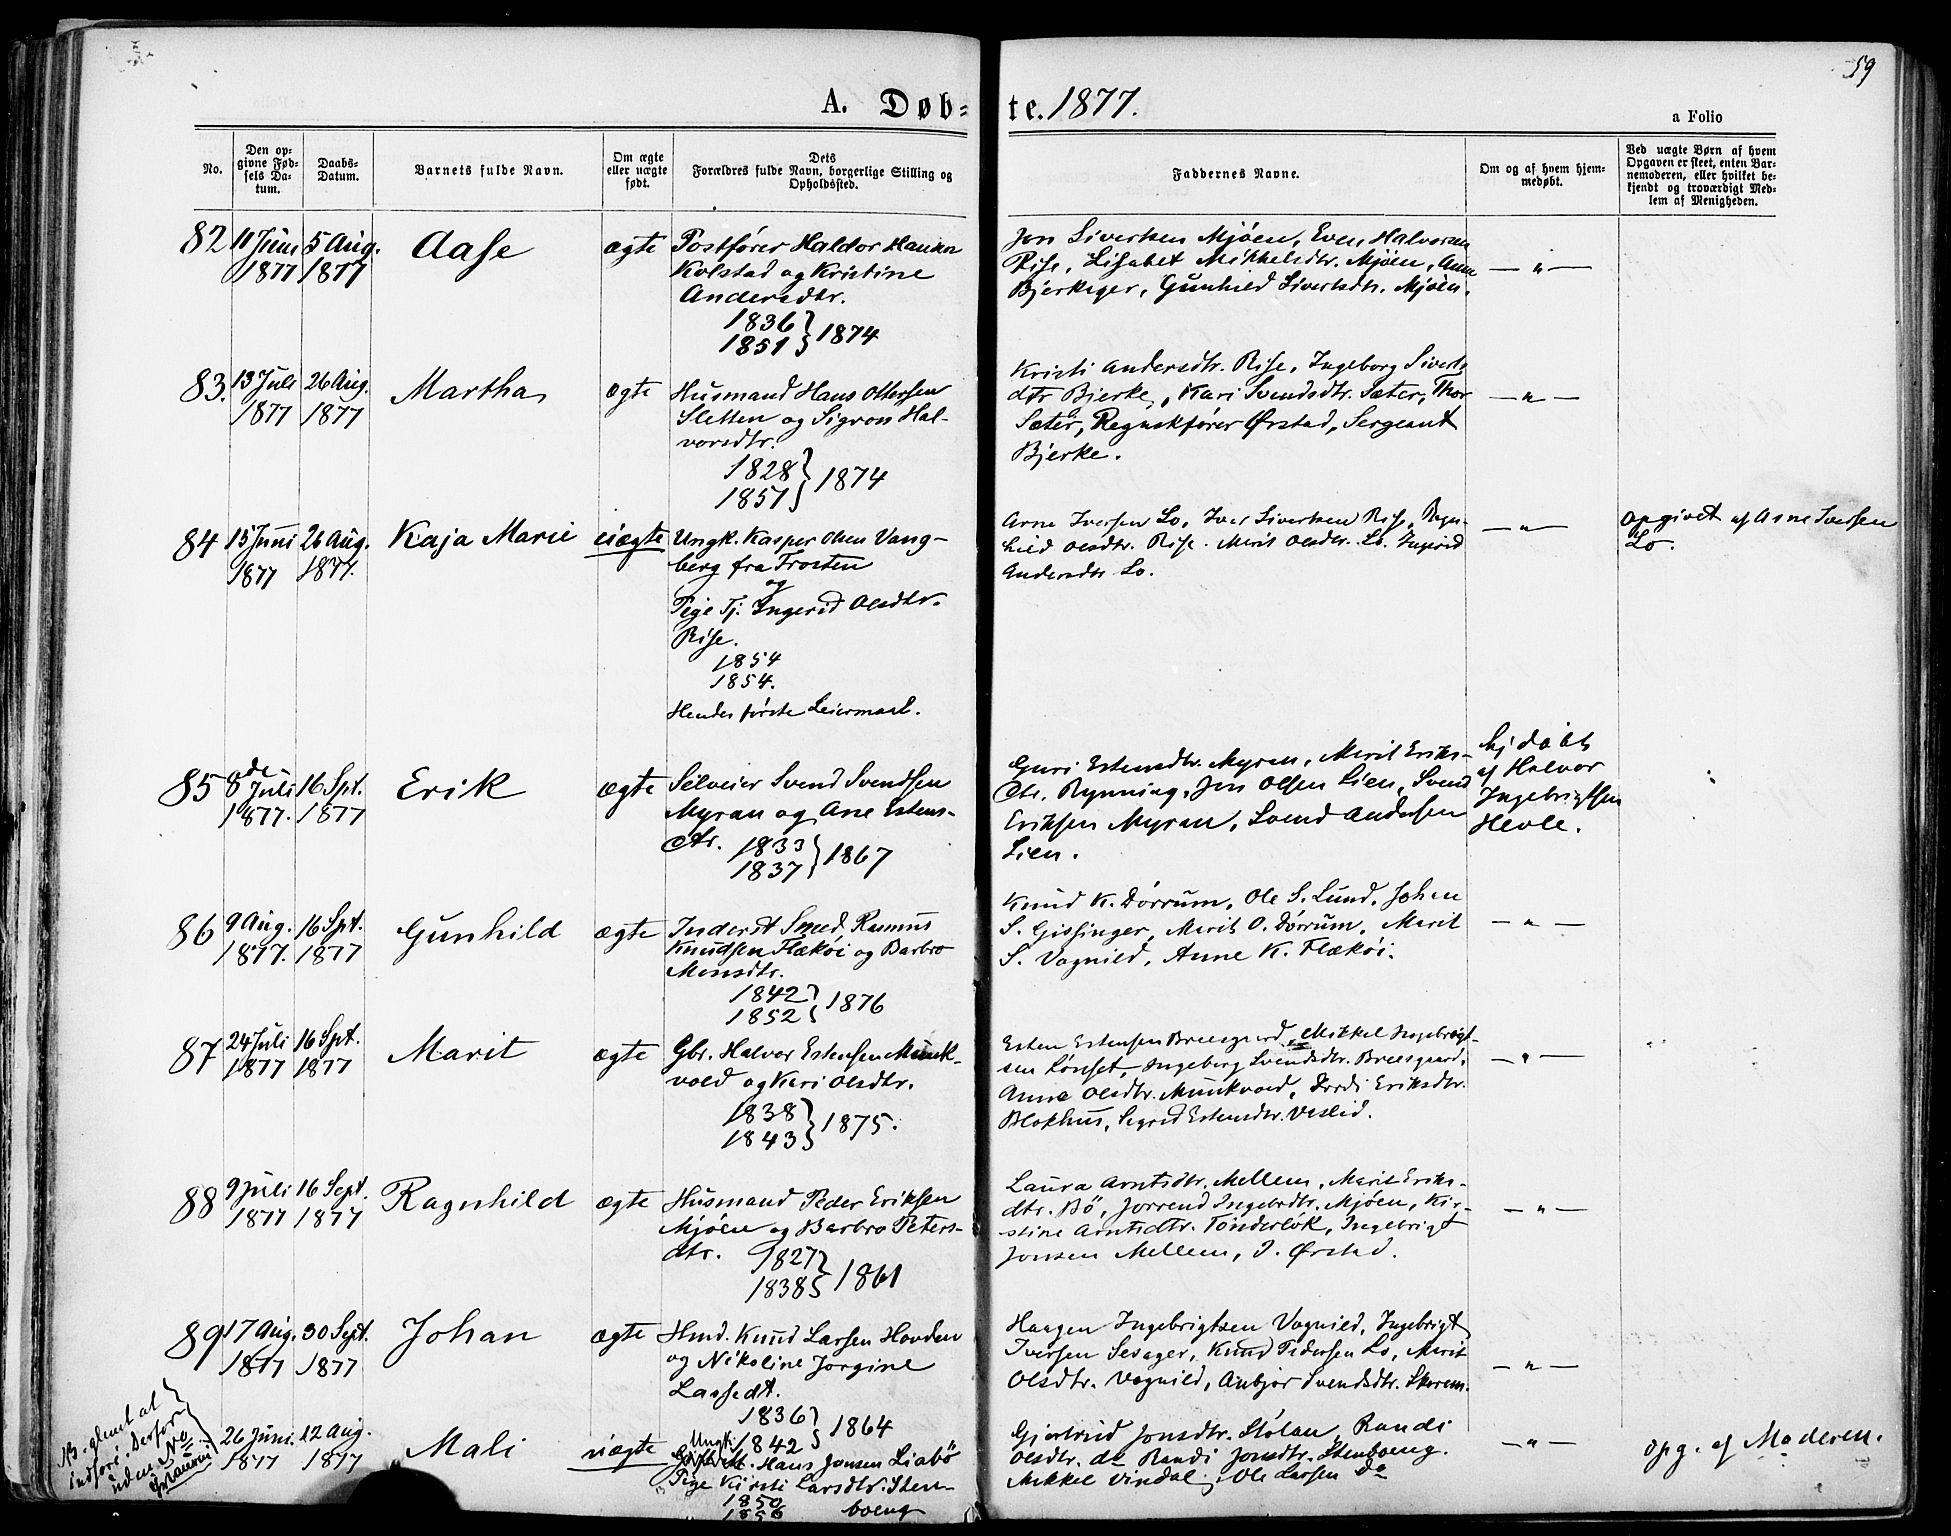 59
A. Døb=
te. 1877.
a Folio
No.
Den op-
givne Fød-
sels Da-
tum.
Daabs-
Datum.
Barnets fulde Navn.
Om ægte
eller uægte
født.
Dets
Forældres fulde Navn, borgerlige Stilling og
Opholdssted.
Faddernes Navne.
Om og af hvem hjem-
medøbt.
Ved uægte Børn af hvem
Opgaven er skeet, enten Bar-
nemoderen, eller hvilket be-
kjendt og troværdigt Med-
lem af Menigheden.
82
11 Juni
1877
5 Aug.
1877
Aase
ægte
Postfører Haldor
Kolstad og Kristine
Andersdtr.
1836 } 1874
1851
Jon Sivertsen Mjøen, Even Halvorsen
Rise, Lisabet Mikkelsdtr. Mjøen, Anne
Bjerkager, Gunhild Sivertsdtr. Mjøen.
— " —
83.
13 Juli
1877
26 Aug.
1877
Martha
ægte
Husmand Hans Ottersen
Sletten og Sigron Hal-
vorsdtr.
1828 } 1874
1851
Kristi Andersdtr. Rise, Ingeborg Siverts
dtr Bjerke, Kari Svendsdtr. Sæter, Thor
Sæter, Regnskfører Ørstad, Sergeant
Bjerke.
— " —
84
15 Juni
1877
26 Aug.
1877.
Kaja Marie
uægte
Ungk. Kasper Olsen Vang-
berg fra Frosten
og
Pige Tj. Ingerid Olsdtr.
Rise.
1854
1854.
Hendes første Leiermaal.
Arne Iversen Lo, Iver Sivertsen Rise, Ragn-
hild Olsdtr. Rise. Merit Olsdtr. Lo. Ingerid
Andersdtr Lo.
— " —
Opgivet af Arne Iversen
Lo.
85
8de Juli
1877.
16 Spt.
1877
Erik
ægte
Selveier Svend Svendsen
Myran og Ane Estens-
dtr. 1833 } 1867
1837
Guri Estensdtr. Myran, Marit Eriks-
dtr. Rynning, Jon Olsen Lien, Svend
Eriksen Myran, Svend Andersen
Lien.
Hj døbt
af Halvor
Ingebrigtsen
Hevle.
86
9 Aug.
1877.
16 Spt.
1877
Gunhild
ægte
Inderst Smed Rasmus
Knudsen Flækøi og Barbro
Monsdtr.
1842 } 1876
1852
Knud K. Dørrum, Ole S. Lund, Johan
S. Gissinger, Marit O. Dørrum, Marit
S. Vognild, Anne K. Flækøi.
— " —
87
24 Juli
1877
16 Spt.
1877
Marit
ægte
Gbr. Halvor Estensen Munk-
vold og Kari Olsdtr.
1838 } 1875.
1843
Esten Estensen Breesgaard, Mikkel Ingebrigt-
sen Lønset, Ingeborg Svendsdtr. Breesgaard,
Anne Olsdtr. Munkvold, Dordi Eriksdtr.
Blokhus, Sigrid Estensdtr. Veslid.
— " —
88
9 Juli
1877
16 Sept.
1877
Ragnhild
ægte
Husmand Peder Eriksen
Mjøen og Barbro Peters-
dtr. 1827 } 1861
1838
Laura Arntsdtr. Mellem, Marit Eriks-
dtr. Bö, Jorrend Ingebrdtr. Mjøen, Kir-
stine Arntsdtr. Tönderlök, Ingebrigt
Jonsen Mellem, J. Ørstad.
— " —
89
17 Aug.
1877
30 Sept.
1877
Johan
ægte
Hmd. Knud Larsen Hovden
og Nikoline Jørgine
Larsdt.
1836 } 1864
1842
Haagen Ingebrigtsen Vognild, Ingebrigt
Iversen Sesager, Knud Pedersen Lo, Merit
Olsdtr. Vognild, Anbjør Svendsdtr. Skorem.
— " —
NB. glemt at
indføre; derfor
uden No
26 Juni.
1877
12 Aug.
1877
Mali
uægte
Ungk.
Hans Jonsen Liabö
Pige Kirsti Larsdtr. Sten-
1850 boeng
1856
Gjertrud Jonsdtr. Stölan, Randi
Olsdtr. do Randi Jonsdtr. Stenboeng.
Mikkel Vindal, Ole Larsen Do
— " —
opg. af Moderen.